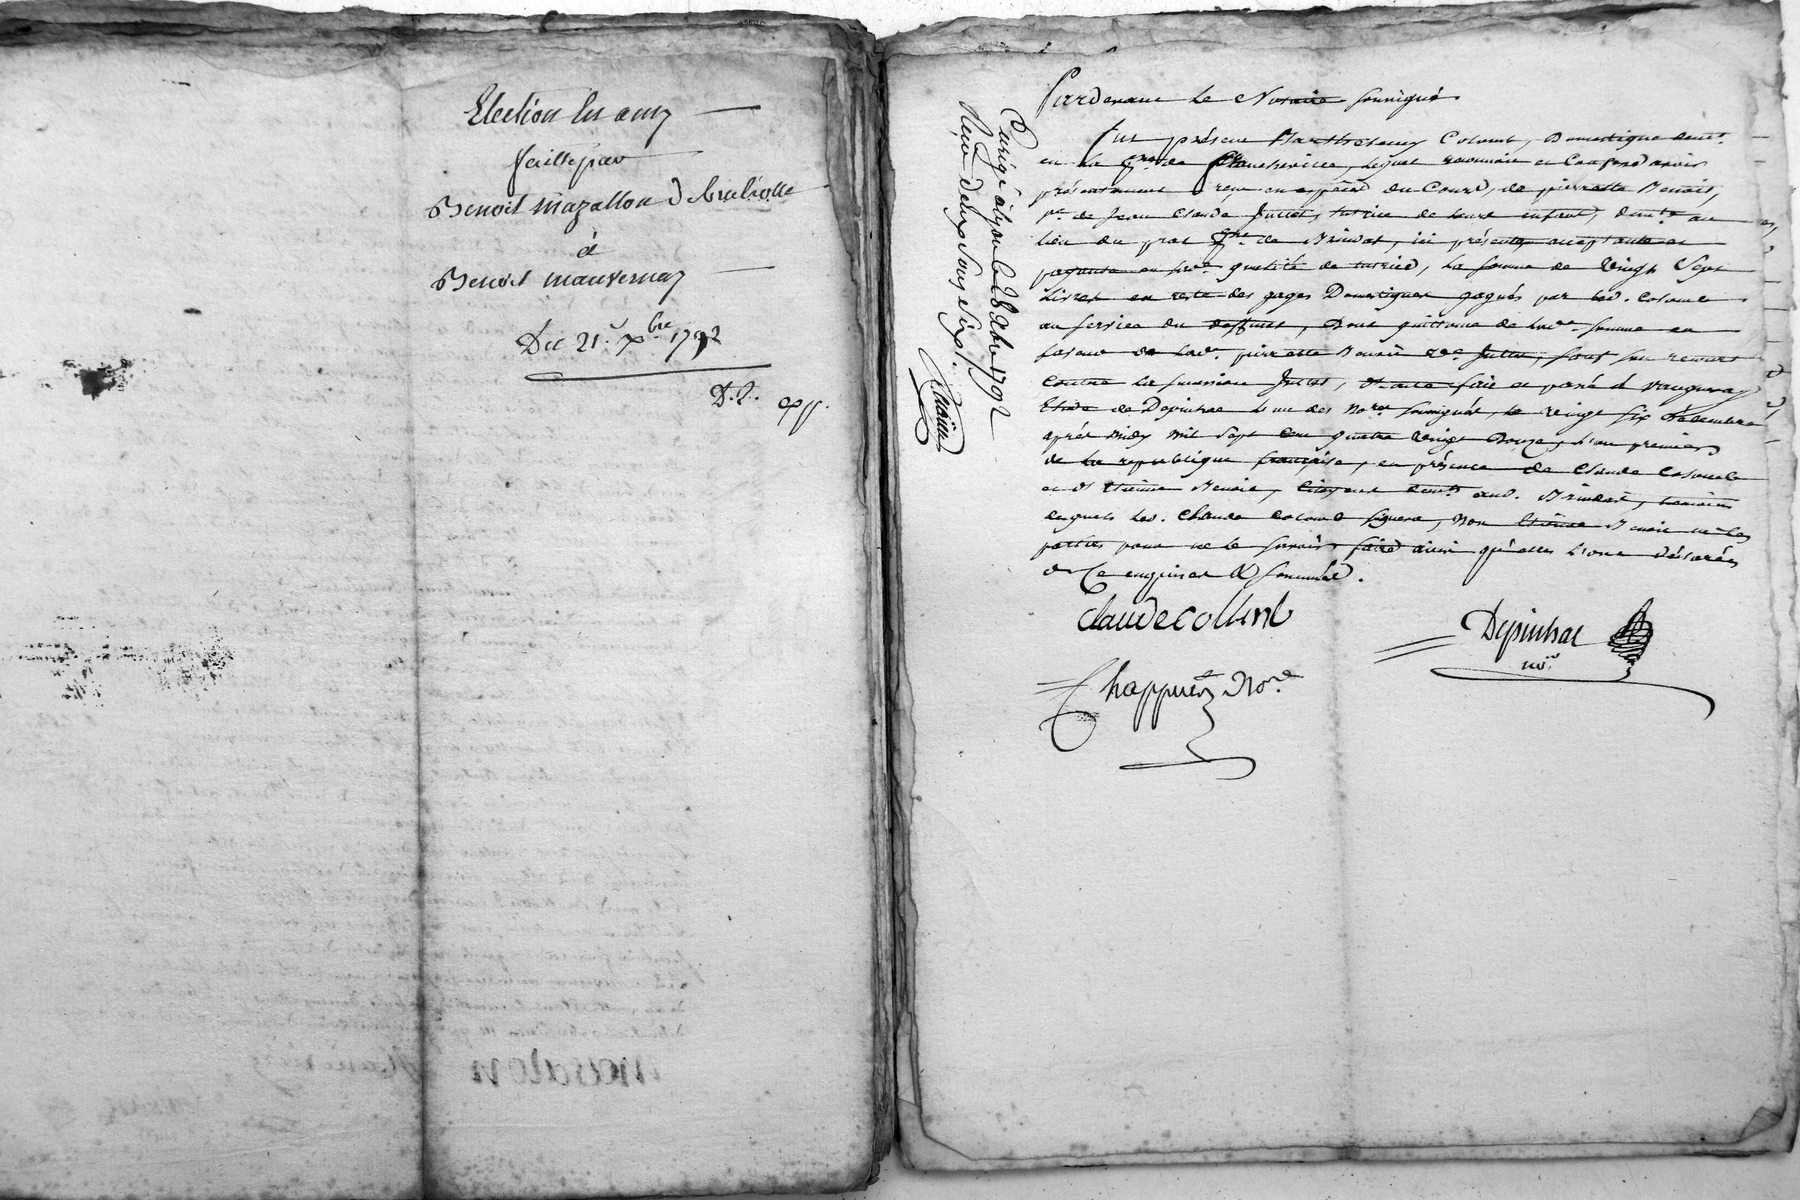 Election en amy
faitte par
Benoit Mazallon
à
Benoit Mauvernay
Du 21e. Xbre 1792
D. 2. exp.
Pardevant le Notaire soussigné
fut présent Barthelemy Colomb, Domestique demt.
en la de francheville, lequel reconnoit et Confesse avoir
présentement reçu en espèces du Cours, de pierrette Benoit,
ve. de Jean Claude Jullet, tutrice de leurs enfans, demte. au
lieu du prat de Brindas, ici présente acceptante et
payante en sa de. qualité de tutrice, la somme de Vingt Sept
Livres en reste des gages Domestiques gagnés par led. Colomb
au service du deffunt, Dont quittance de lade. somme en
faveur de lad. pierrette Benoit ve. Jullet, sauf son recours
Contre la succession Jullet, fait et passé à vaugneray
Etude de Depinhac l'un des Nores. soussignés, le vingt six décembre
après midy mil Sept Cent quatre Vingt Douze, l'an premier
de la republique françoise, en présence de Claude Colomb
et d'Etienne Benoit, Citoyens demts. aud. Brindas, temoins
lesquels led. Claude Colomb signera, Non Etienne Benoit ni les
parties pour ne le savoir faire ainsi qu'elles l'ont déclaré
de Ce enquises & sommées.
Claude collomb
Depinhac
nore
Chappuis Nore.
Enregé à Lyon le 28 Xbre 1792
Reçu